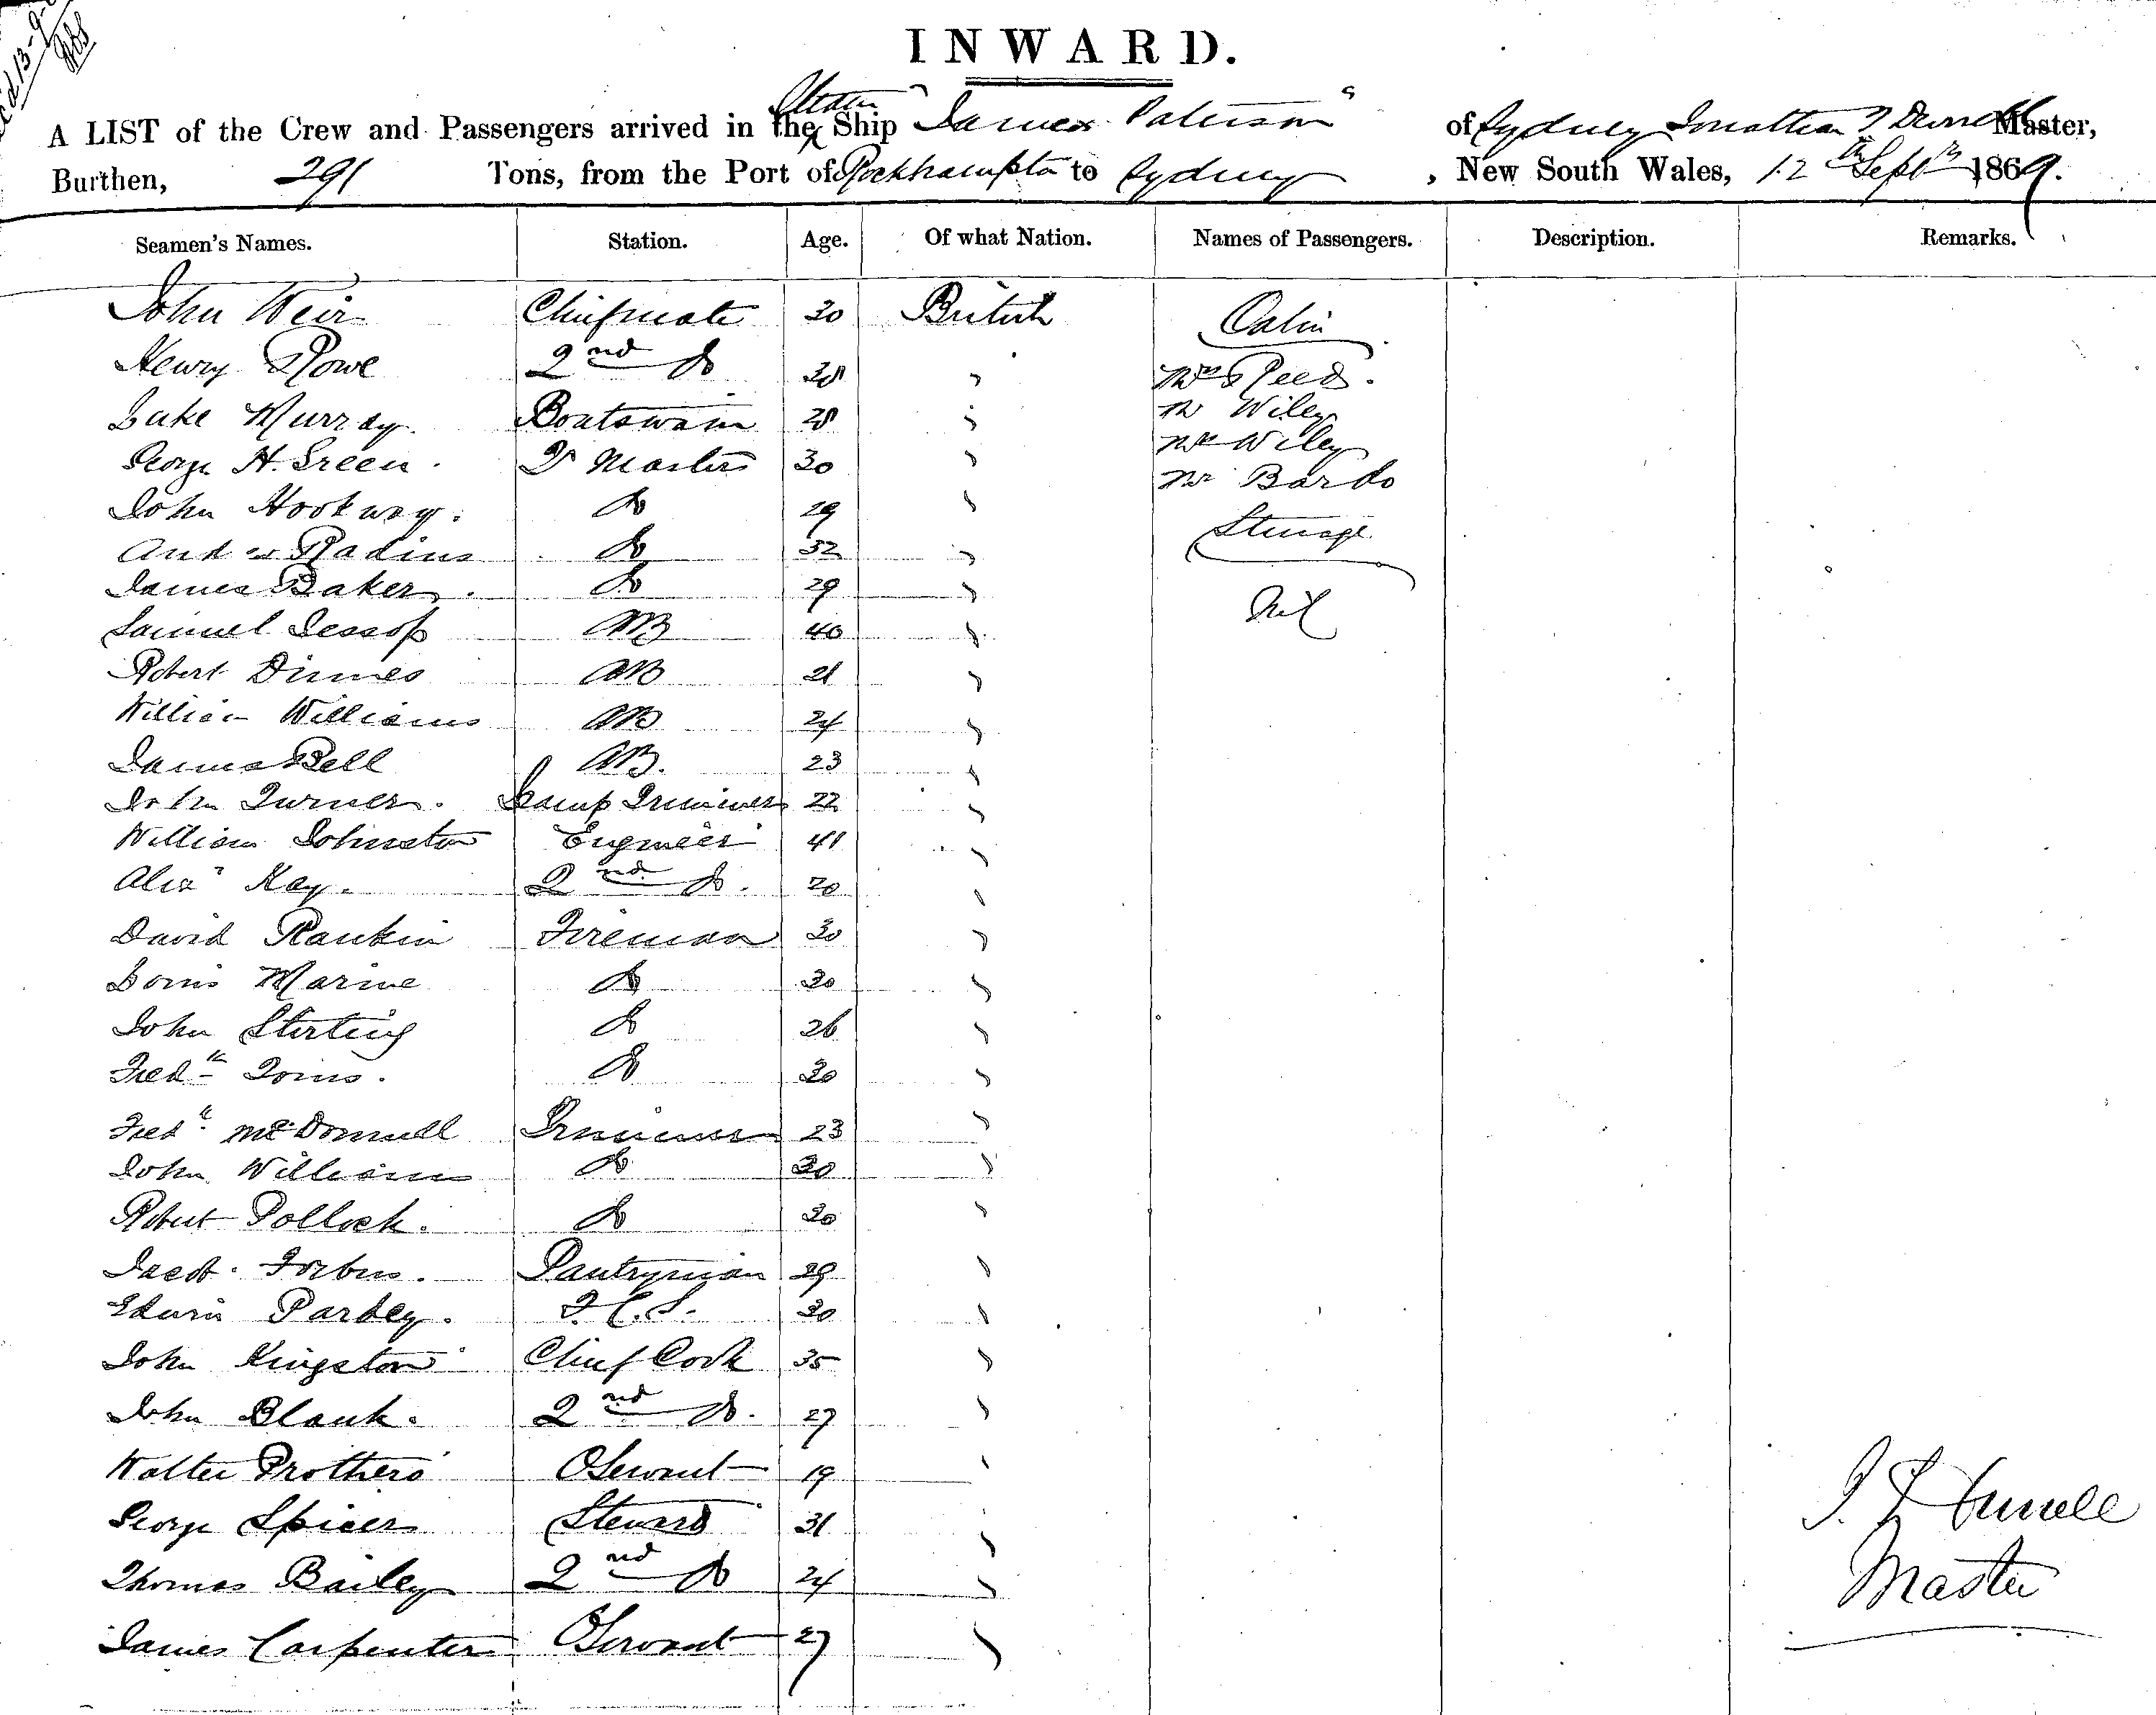 INWARD.
A LIST of the Crew and Passengers arrived in the Steam Ship "James Paterson" of Sydney Master,
Burthen, 291 Tons, from the Port of Rockhampton to Sydney, New South Wales, 12th Sept 1869.
Seamen's Names. Station. Age. Of what Nation. Names of Passengers. Description. Remarks.
John Weir Chief mate 30 British Cabin
Henry Rowe 2nd Do Mrs Reed.
Luke Murray. Boatswain 28 Mr Wiley
George H. Green. Qr Masters 30 Mrs Wiley
John Hookway. Do 29 Mr Bardo
Radins Do 32 Steerage
James Baker. Do 29
Samuel Jessop AB 40 Nil
Robert Dinnes AB 21
William Williams AB 24
James Bell AB. 23
John Turner. Lamp Trimmer 22
William Johnston Engineer 41
Alexr Kay. 2nd Do. 20
David Rankin Fireman 30
Marine Do 30
John Sterling Do 26
Fredk Do 30
Fredk McDonnell Trimmer 23
John William Do 30
Robert Pollock. Do 30
Forbes. Pantryman 29
Edwin Parbey. F.C.S. 30
John Kingston Chief Cook 35
John Blank. 2nd Do. 27
Walter Prothero Servant 19
George Spicer Steward 31
Thomas Bailey 2nd Do 24
James Carpenter Servant 27
Master